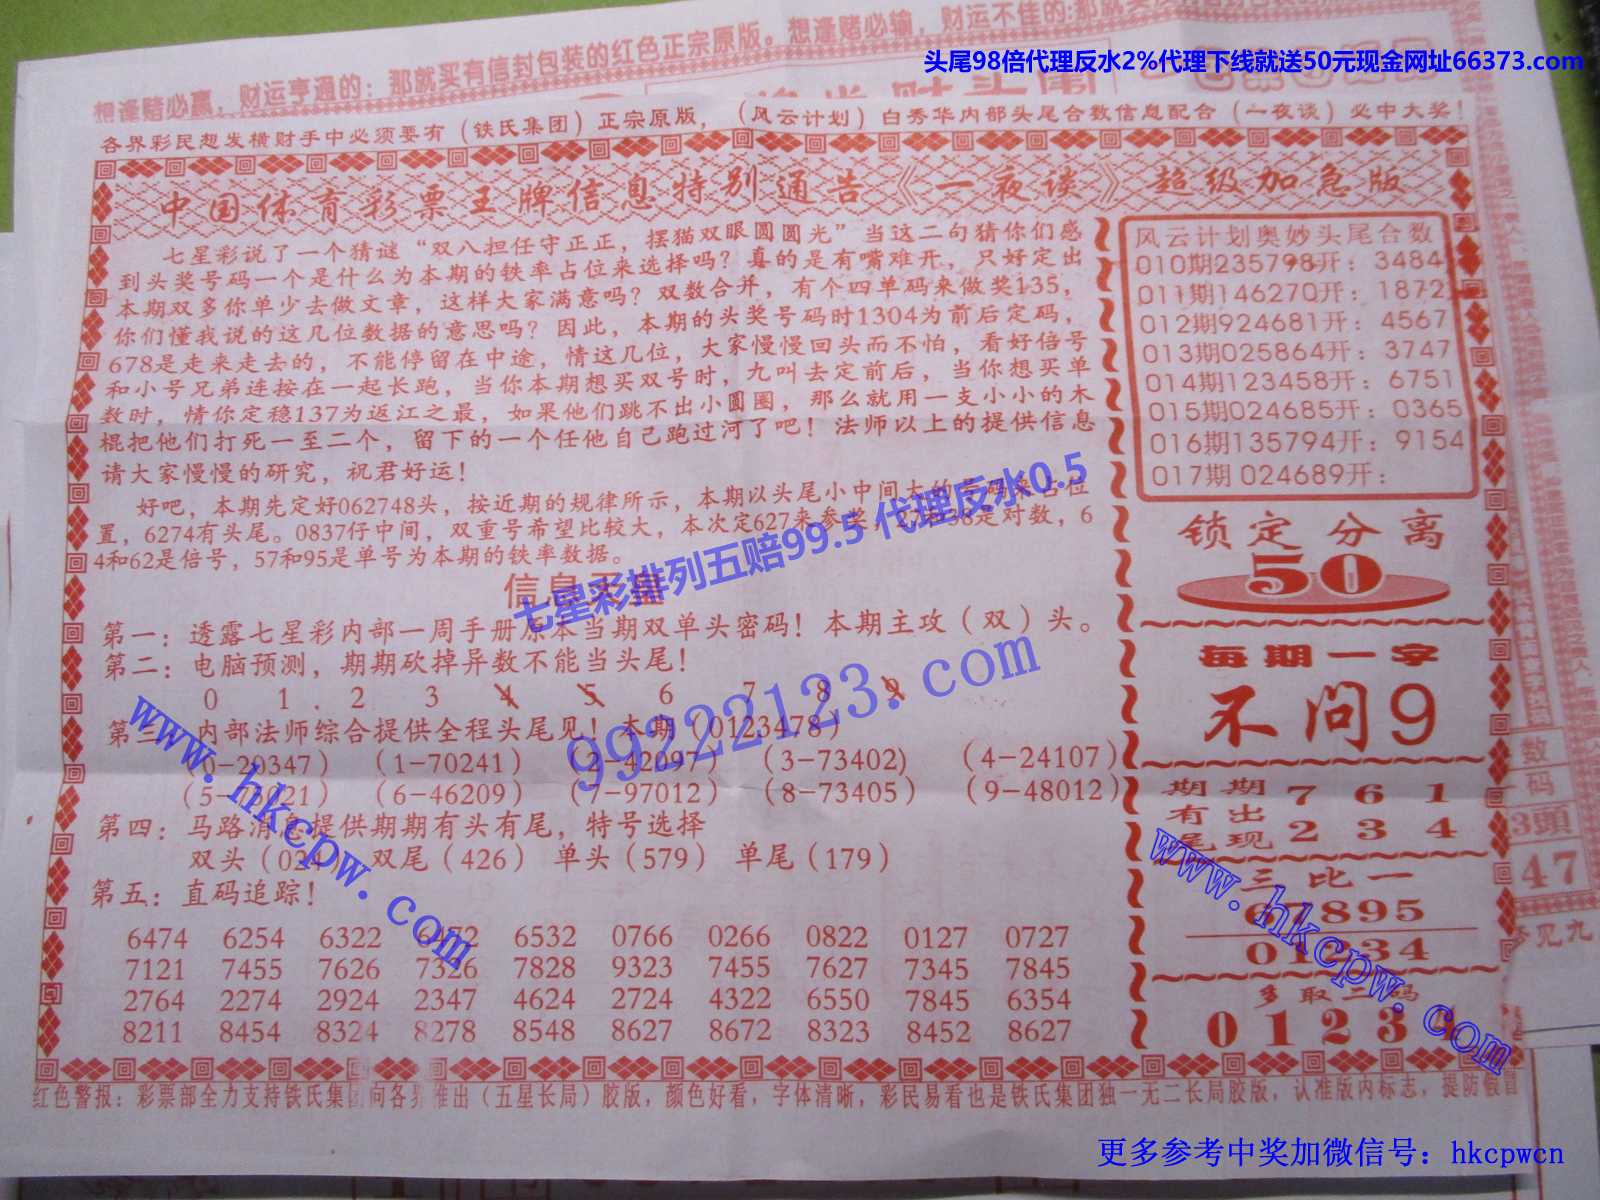 头尾98倍代理反水2%代理下线就送50元现金网址66373.com
想逢赌必赢，财运亨通的：那就买有信封包装的红色正宗原版。想逢赌必输，财运不佳的:那就买
各界彩民想发横财手中必须要有（铁氏集团）正宗原版，（风云计划）白秀华内部头尾合数信息配合（一夜谈）必中大奖！
中国体育彩票王牌信息特别通告《一夜谈》超级加急版
七星彩说了一个猜谜“双八担任守正正，摆猫双眼圆圆光”当这二句猜你们感
到头奖号码一个是什么为本期的铁率占位来选择吗？真的是有嘴难开，只好定出
本期双多你单少去做文章，这样大家满意吗？双数合并，有个四单码来做奖135，
你们懂我说的这几位数据的意思吗？因此，本期的头奖号码时1304为前后定码，
678是走来走去的，不能停留在中途，情这几位，大家慢慢回头而不怕，看好倍号
和小号兄弟连按在一起长跑，当你本期想买双号时，九叫去定前后，当你想买单
数时，情你定稳137为返江之最，如果他们跳不出小圆圈，那么就用一支小小的木
棍把他们打死一至二个，留下的一个任他自己跑过河了吧！法师以上的提供信息
请大家慢慢的研究，祝君好运！
好吧，本期先定好062748头，按近期的规律所示，本期以头尾小中间大的号码来占位
置，6274有头尾。0837仔中间，双重号希望比较大，本次定627来参奖，27和38是对数，6
4和62是倍号，57和95是单号为本期的铁率数据。
七星彩排列五赔99.5 代理反水0.5
信息
第一：透露七星彩内部一周手册原本当期双单头密码！本期主攻（双）头。
第二：电脑预测，期期砍掉异数不能当头尾！
0 1 . 2 3 4 5 6 7 8 9
99222123.com
第三：内部法师综合提供全程头尾见！本期（0123478）
(0-20347) (1-70241) (2-42097) (3-73402) (4-24107)
(5- 021) (6-46209) (7-97012) (8-73405) (9-48012)
第四：马路消息提供期期有头有尾，特号选择
双头（024）双尾（426）单头（579）单尾（179）
第五：直码追踪！
6474 6254 6322 6532 0766 0266 0822 0127 0727
7121 7455 7626 7326 7828 9323 7455 7627 7345 7845
2764 2274 2924 2347 4624 2724 4322 6550 7845 6354
8211 8454 8324 8278 8548 8627 8672 8323 8452 8627
www.hkcpw.com
风云计划奥妙头尾合数
010期235798开：3484
011期146270开：1872
012期924681开：4567
013期025864开：3747
014期123458开：6751
015期024685开：0365
016期135794开：9154
017期 024689开：
锁定分离
50
每期一字
不问9
期期 7 6 1
有出
尾现 2 3 4
三比一
67895
01234
多取二码
0 1 2 3
www.hkcpw.com
数
码
3頭
47
见九
红色警报：彩票部全力支持铁氏集团向各界推出（五星长局）胶版，颜色好看，字体清晰，彩民易看也是铁氏集团独一无二长局胶版，认准版内标志，提防假冒
更多参考中奖加微信号：hkcpwcn